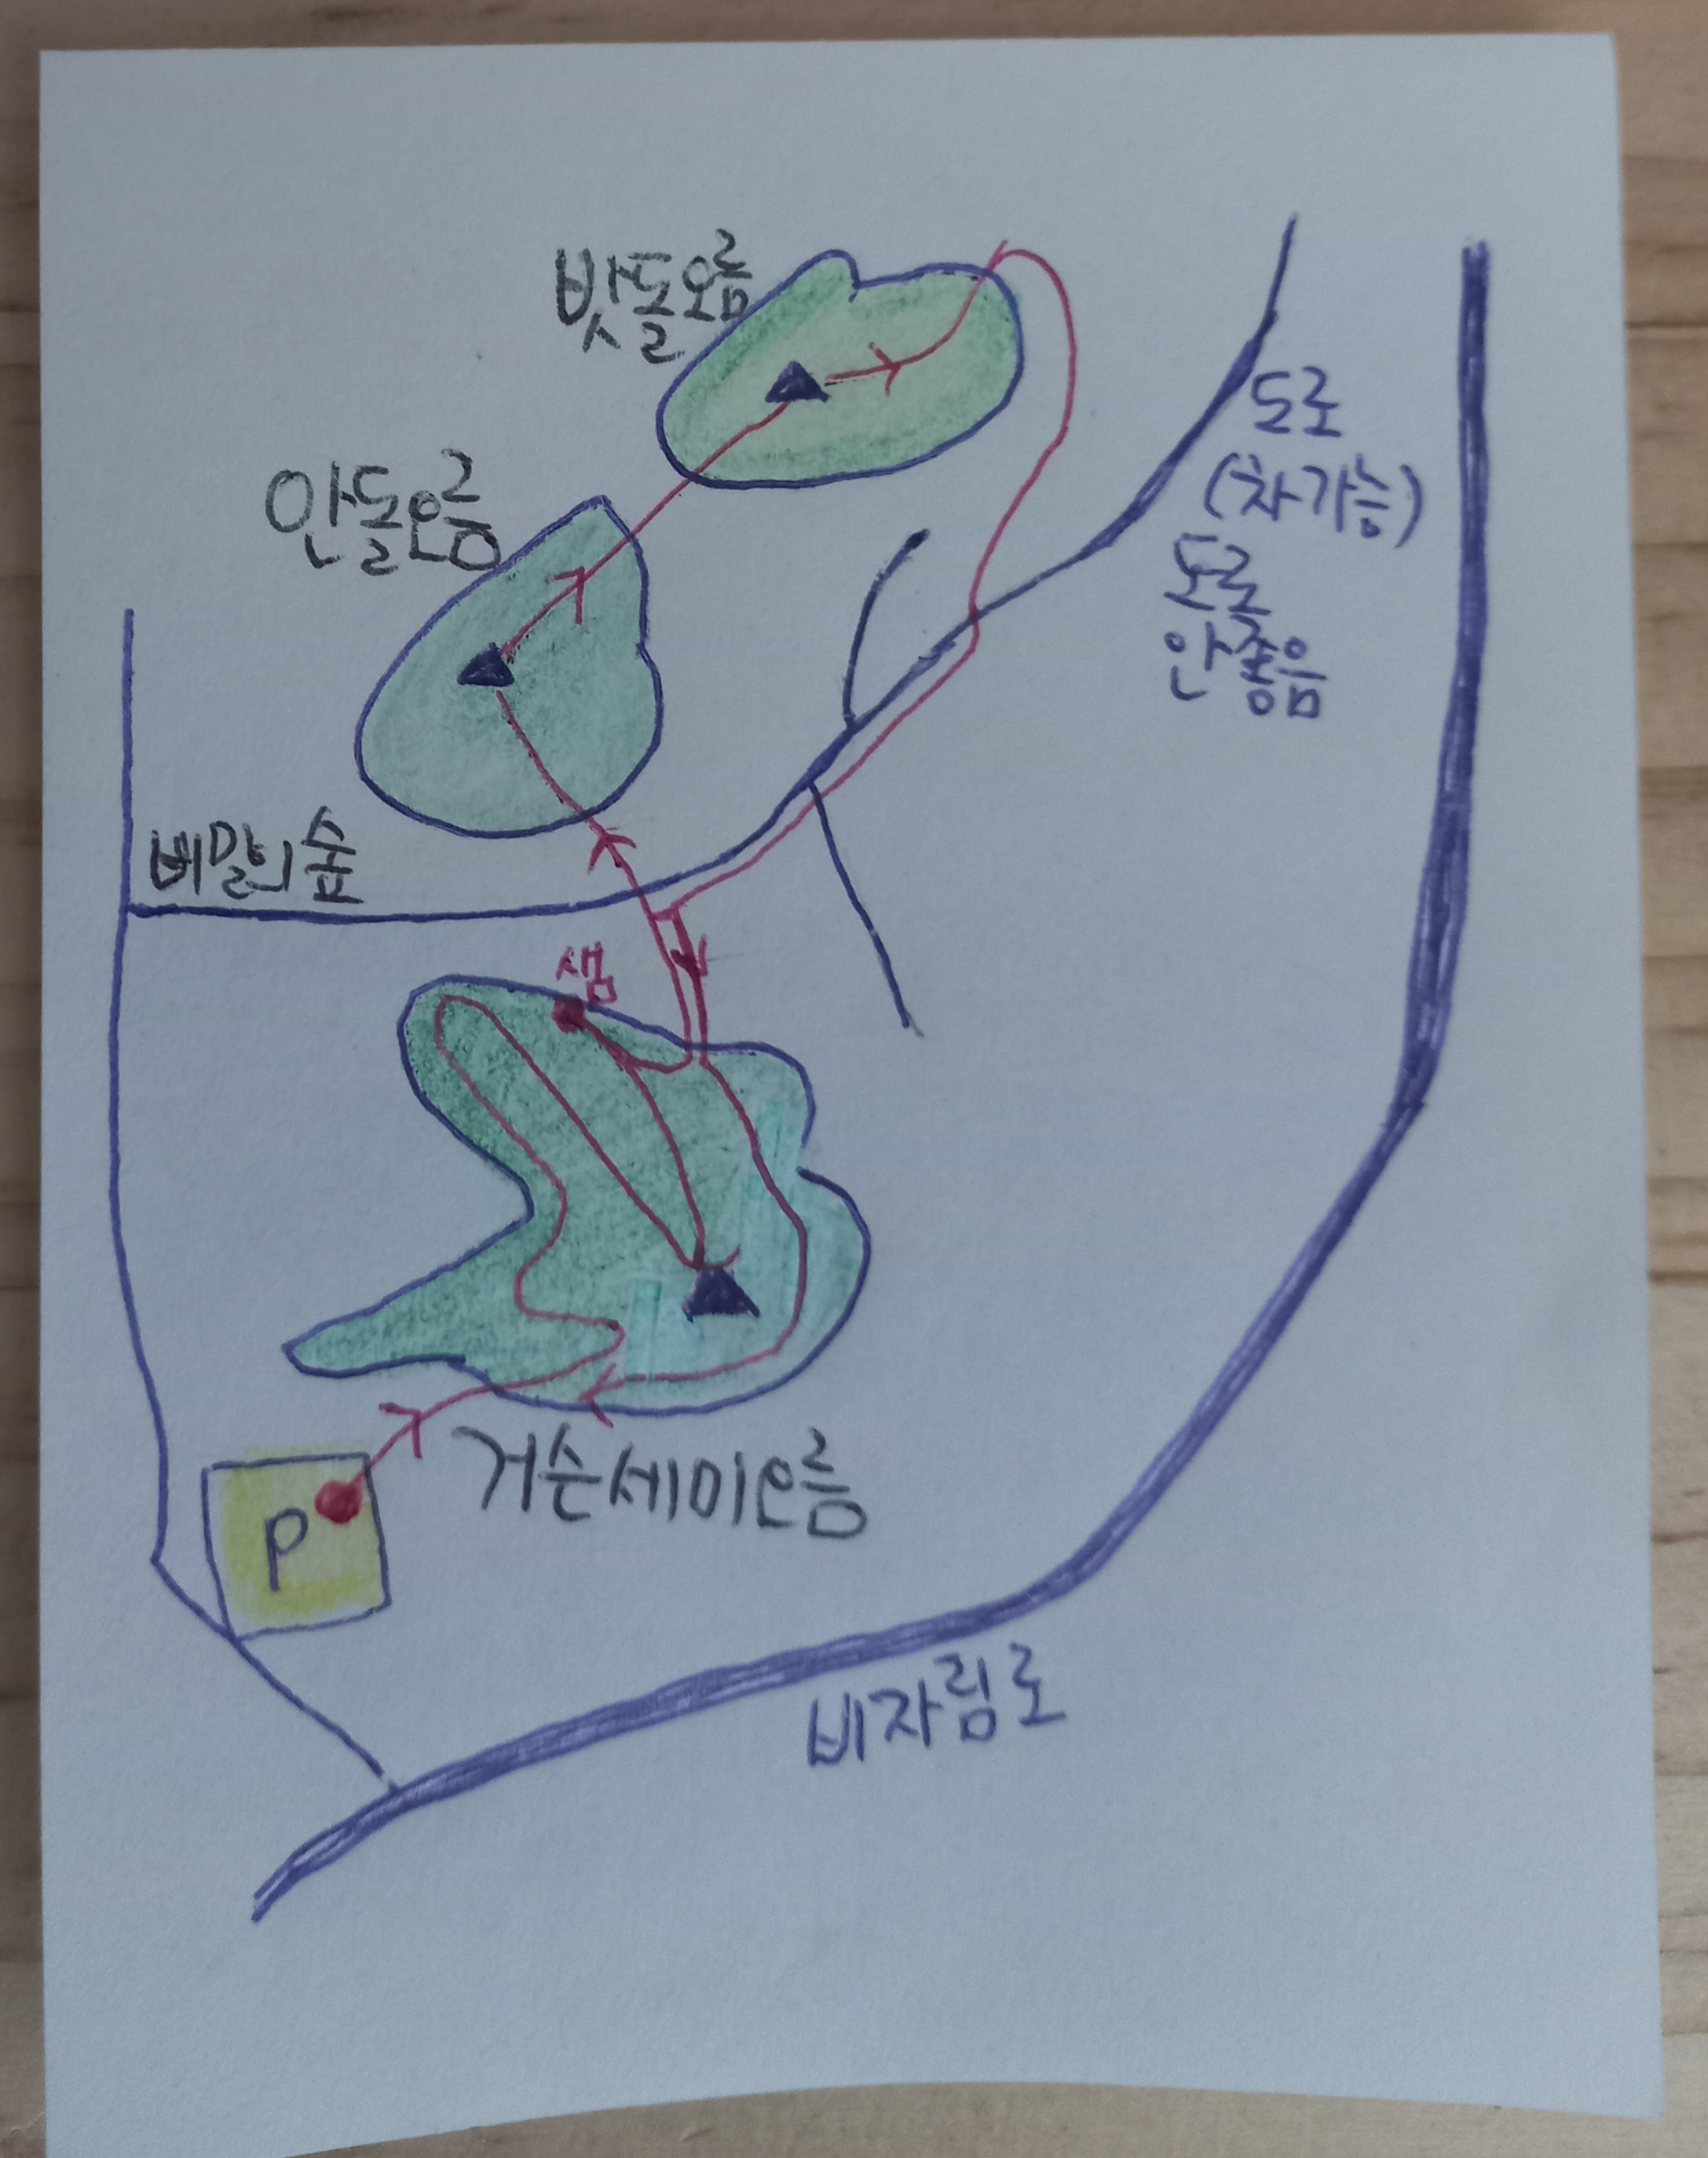 밧돌오름
안돌오름
도로
(차가능)
도로
안좋음
비밀의숲
샘
거슨세미오름
P
비자림로